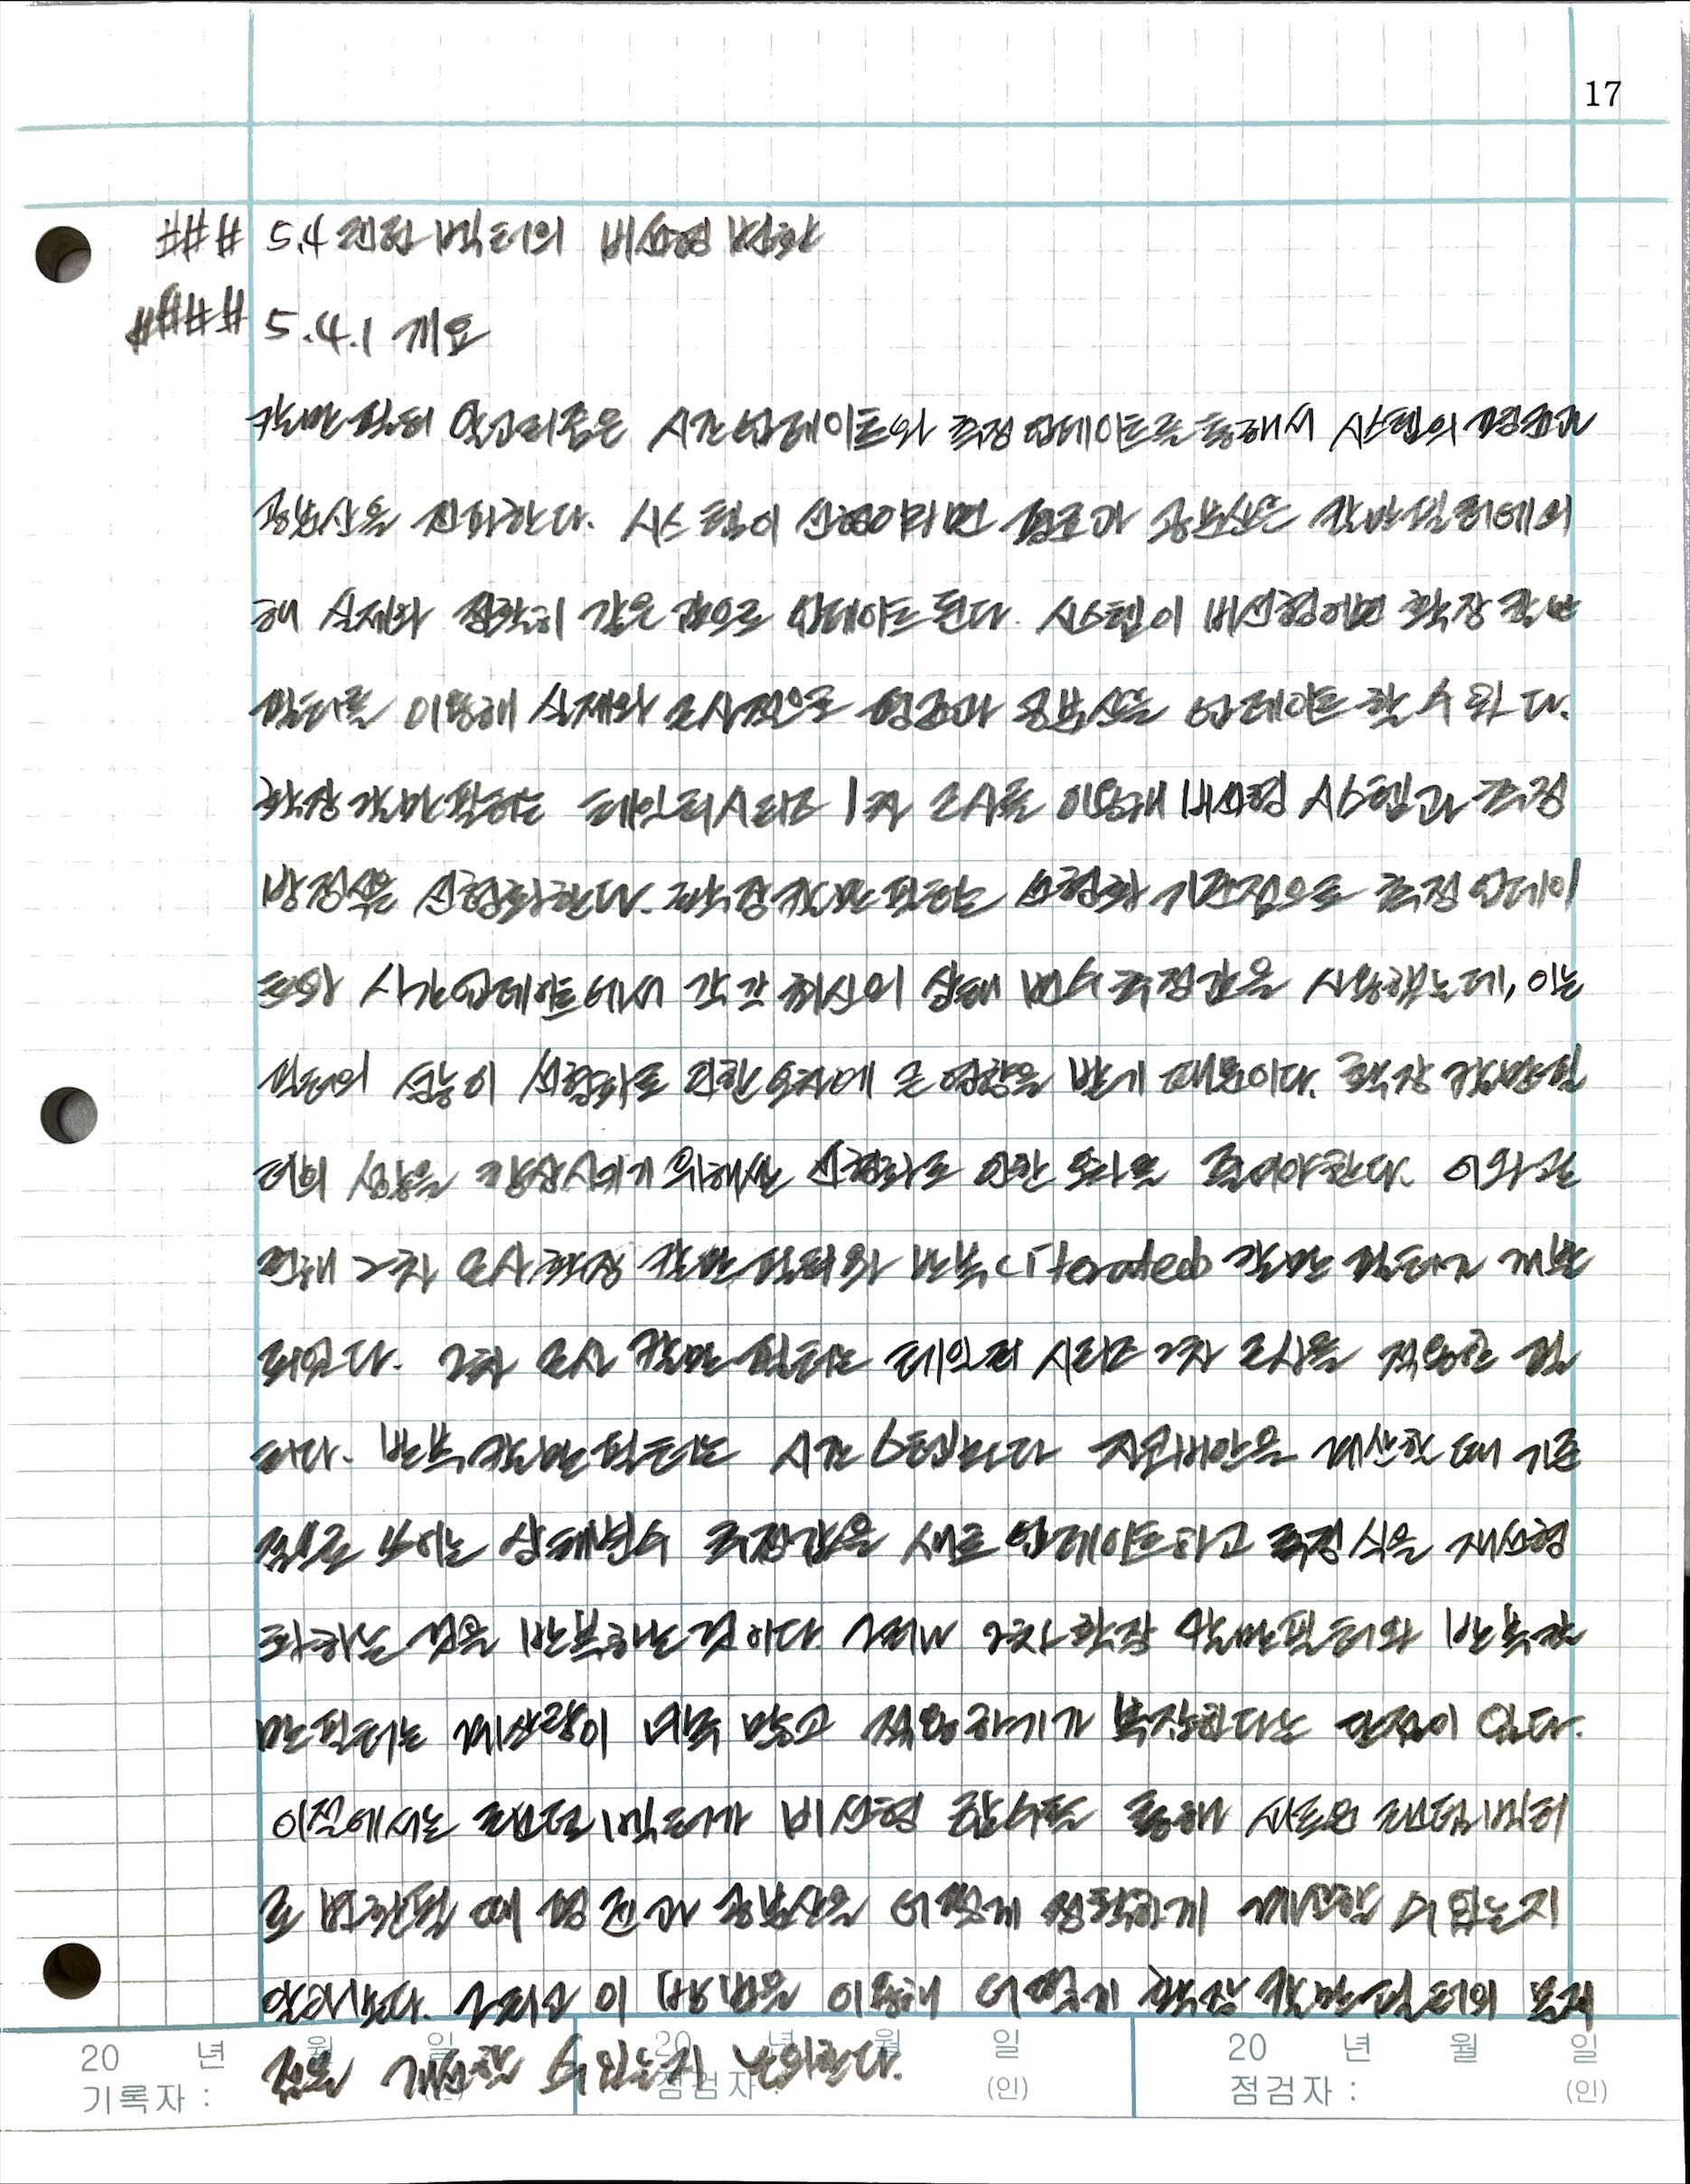 17
### 5.4 랜덤 벡터의 비선형 변환
#### 5.4.1 개요
칼만 필터 알고리즘은 시간 업데이트와 측정 업데이트를 통해서 시스템의 평균과
공분산을 전파한다. 시스템이 선형이라면 평균과 공분산은 칼만 필터에 의
해 실제와 정확히 같은 값으로 업데이트 된다. 시스템이 비선형이면 확장 칼만
필터를 이용해 실제와 근사적으로 평균과 공분산을 업데이트 할 수 있다.
확장 칼만 필터는 테일러 시리즈 1차 근사를 이용해 비선형 시스템과 측정
방정식을 선형화한다. 확장 칼만 필터는 선형화 기준점으로 측정 업데이
트와 시간 업데이트에서 각각 최신의 상태 변수 추정값을 사용했는데, 이는
필터의 성능이 선형화로 인한 오차에 큰 영향을 받기 때문이다. 확장 칼만 필
터의 성능을 향상시키기 위해서는 선형화로 인한 오차를 줄여야 한다. 이와 관
련해 2차 근사 확장 칼만 필터와 반복(iterated) 칼만 필터가 개발
되었다. 2차 근사 칼만 필터는 테일러 시리즈 2차 근사를 적용한 필
터다. 반복 칼만 필터는 시간 스텝마다 자코비안을 계산할 때 기준
점으로 쓰이는 상태변수 추정값을 새로 업데이트하고 측정식을 재선형
화하는 것을 반복하는 것이다. 그러나 2차 확장 칼만 필터와 반복 칼
만 필터는 계산량이 너무 많고 적용하기가 복잡하다는 단점이 있다.
이 절에서는 랜덤 벡터가 비선형 함수를 통해 새로운 랜덤 벡터
로 변환될 때 평균과 공분산을 어떻게 정확하게 계산할 수 있는지
알아본다. 그리고 이 방법을 이용해 어떻게 확장 칼만 필터의 문제
점을 개선할 수 있는지 논의한다.
20 년 월 일 20 년 월 일 20 년 월 일
기록자 : (인) 점검자 : (인) 점검자 : (인)